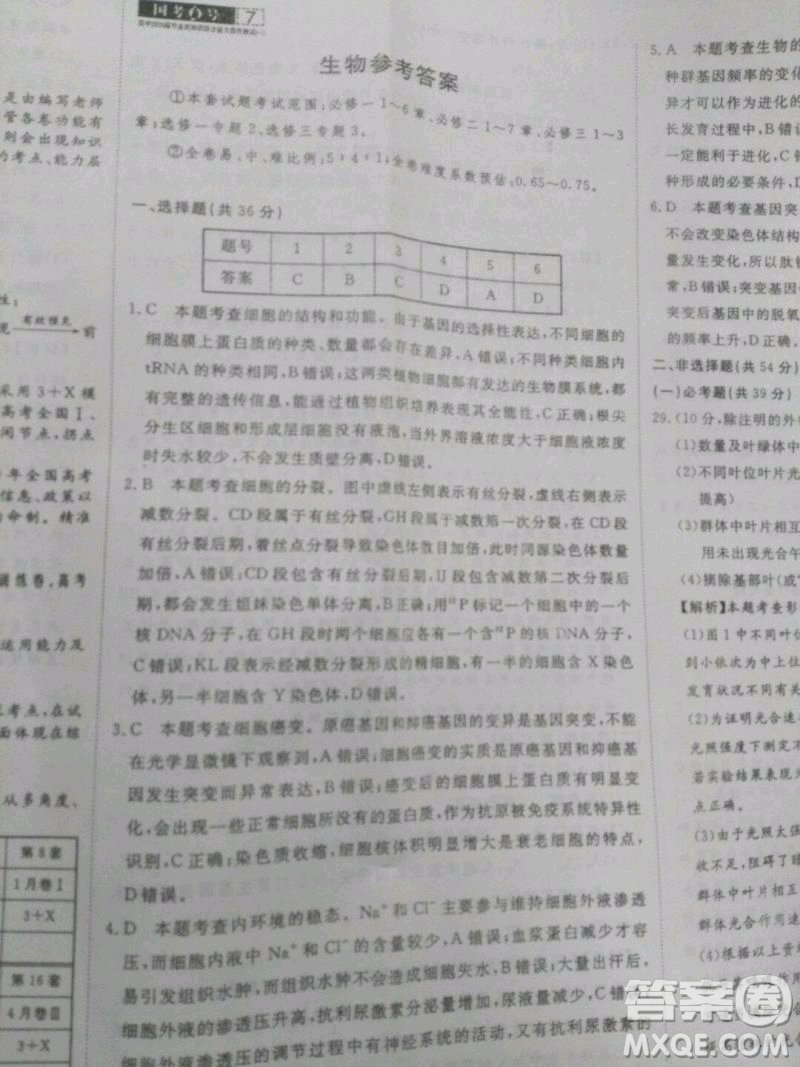 国考1号 7
生物参考答案
①本套试题考试范围:必修一1~6章,必修二1~7章,必修三1~3
章;选修一专题2、选修三专题3。
②全卷易、中、难比例:5:4:1;全卷难度系数预估:0.65~0.75。
一、选择题(共36分)
题号 1 2 3 4 5 6
答案 C B C D A D
1.C 本题考查细胞的结构和功能。由于基因的选择性表达,不同细胞的
细胞膜上蛋白质的种类、数量会存在差异,A错误;不同种类细胞内
tRNA的种类相同,B错误;这两类植物细胞都有发达的生物膜系统,
有完整的遗传信息,能通过植物组织培养表现其全能性,C正确;根尖
分生区细胞和形成层细胞没有液泡,当外界溶液浓度大于细胞液浓度
时失水较少,不会发生质壁分离,D错误。
2.B 本题考查细胞的分裂。图中虚线左侧表示有丝分裂,虚线右侧表示
减数分裂。CD段属于有丝分裂,GH段属于减数第一次分裂,CD段在
有丝分裂后期,着丝点分裂导致染色体数目加倍,此时同源染色体数量
加倍,A错误;CD段包含有丝分裂后期,IJ段包含减数第二次分裂后期,
都会发生姐妹染色单体分离,B正确;用³²P标记一个
核DNA分子,在GH段时两个细胞应各含一个³²P的核DNA分子,
C错误;KL段表示经减数分裂形成的精细胞,有一半的细胞含X染色
体,另一半的细胞含Y染色体,D错误。
3.C 本题考查细胞癌变。原癌基因和抑癌基因的变异是基因突变,不能
在光学显微镜下观察到,A错误;癌变的实质是原癌基因和抑癌基
因发生突变而异常表达,B错误;癌变后的细胞膜上蛋白质发生明显变
化,会出现一些正常细胞所没有的蛋白质,作为抗原被免疫系统特异性
识别,C正确;染色质收缩,细胞核体积明显增大是衰老细胞的特点,
D错误。
4.D 本题考查内环境的稳态。Na⁺和Cl⁻主要参与维持细胞外液渗透
压,而细胞内液中Na⁺和Cl⁻的含量较少,A错误;血浆蛋白减少,容
易引发组织水肿,而组织水肿不会引起细胞失水,B错误;大量出汗后,
细胞外液的渗透压升高,抗利尿激素分泌量增加,C错误;
外液渗透压的调节过程中有神经系统的活动,又有抗利尿激素的
5.A 本题考查生物的
种群基因频率的变化
异才可以作为进化的
长发育过程中,B错误
一定能利于进化,C错
种形成的必要条件,D
6.D 本题考查基因突
不会改变染色体结构
量发生变化,所以肽链
常,B错误;突变基因
突变后基因中的脱氧
的频率上升,D正确。
二、非选择题(共54分)
(一)必考题(共39分)
29.(10分,除注明的外
(1)数量及叶绿体中
(2)不同叶位叶片光
提高)
(3)群体中叶片相互
用未出现光合午
(4)摘除基部叶(或
【解析】本题考查影
(1)图1中不同叶位
到小依次为中上位
发育状况的影响。
(2)为证明光合速
光照强度下测定不
实验变量。
(3)由于光照太强
闭,阻碍了
群体中叶片相互
群体光合作用速
(4)摘除以上黄
是由编写老师
管各卷功能有
则会出现知识
的考点、能力层
生:
现 有效预见 前
采用3+X模
高考全国Ⅰ、
闭节点,拐点
年全国高考
信息、政策以
的命制。精准
训练卷,高考
运用能力及
考点,在试
面体现在综
从多角度、
第8套
1月卷Ⅰ
3+X
第16套
4月卷Ⅲ
3+X
答案圈
MXQE.COM